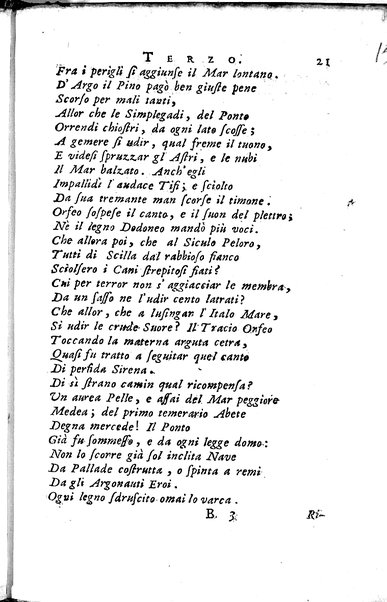 TERZO. 21
Fra i perigli ſi aggiunſe il Mar lontano.
D' Argo il Pino pagò ben giuſte pene
Scorſo per mali tanti,
Allor che le Simplegadi, del Ponto
Orrendi chioſtri, da ogni lato ſcoſſe;
A gemere ſi udir, qual freme il tuono,
E videſi ſpruzzar gl Aſtri, e le nubi
Il Mar balzato. Anch'egli
Impallidì l' audace Tifi; e ſciolto
Da ſua tremante man ſcorſe il timone.
Orfeo ſoſpeſe il canto, e il ſuon del plettro;
Nè il legno Dodoneo mandò più voci.
Che allora poi, che al Siculo Peloro,
Tutti di Scilla dal rabbioſo fianco
Sciolſero i Cani ſtrepitoſi fiati?
Cui per terror non s' aggiacciar le membra,
Da un ſaſſo ne l' udir cento latrati?
Che allor, che a luſingar l' Italo Mare,
Si udir le crude Suore? Il Tracio Orfeo
Toccando la materna arguta cetra,
Quaſi fu tratto a ſeguitar quel canto
Di perfida Sirena.
Di sì ſtrano camin qual ricompenſa?
Un aurea Pelle, e aſſai del Mar peggiore
Medea; del primo temerario Abete
Degna mercede! Il Ponto
Già fu ſommeſſo, e da ogni legge domo:
Non lo ſcorre già ſol inclita Nave
Da Pallade coſtrutta, o ſpinta a remi
Da gli Argonauti Eroi.
Ogni legno ſdruſcito omai lo varca.
B. 3 Ri-